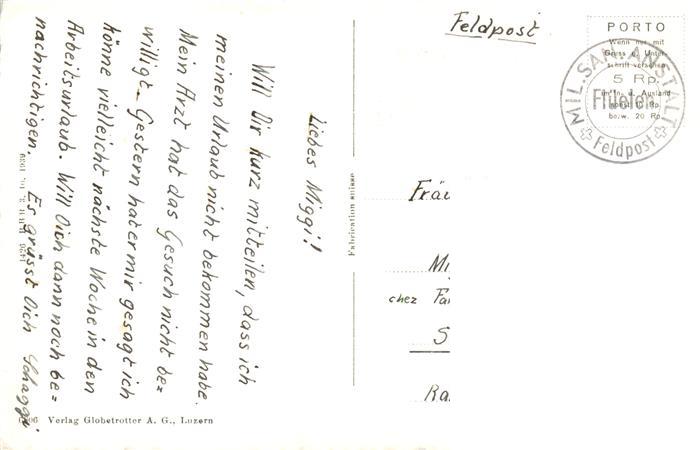 Liebes Miggi!
Will Dir kurz mitteilen, dass ich
meinen Urlaub nicht bekommen habe.
Mein Arzt hat das Gesuch nicht be=
willigt. Gestern hat er mir gesagt ich
könne vielleicht nächste Woche in den
Arbeitsurlaub. Will Dich dann noch be=
nachrichtigen. Es grüsst Dich Schaggi
Verlag Globetrotter A. G., Luzern
Fabrication suisse
Feldpost
PORTO
Wenn nur mit
Gruss u. Unter-
schrift versehen
5 Rp.
MIL. SAN. ANSTALT
Flüelen
Feldpost
bezw. 20 Rp.
Fräu
Mi
chez Fa
S
Ra